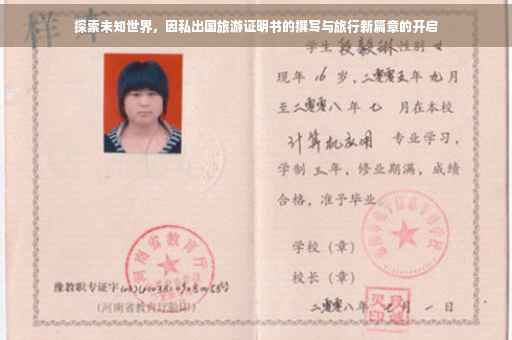 探索未知世界，因私出国旅游证明书的撰写与旅行新篇章的开启
样本
学生段毅琳性别女
现年16岁，二零零五年九月
至二零零八年七月在本校
计算机应用 专业学习，
学制三年，修业期满，成绩
合格，准予毕业
学校（章）
校长（章）
二零零八年七月一日
河南省教育厅
豫教职专证字
（河南省教育厅验印）